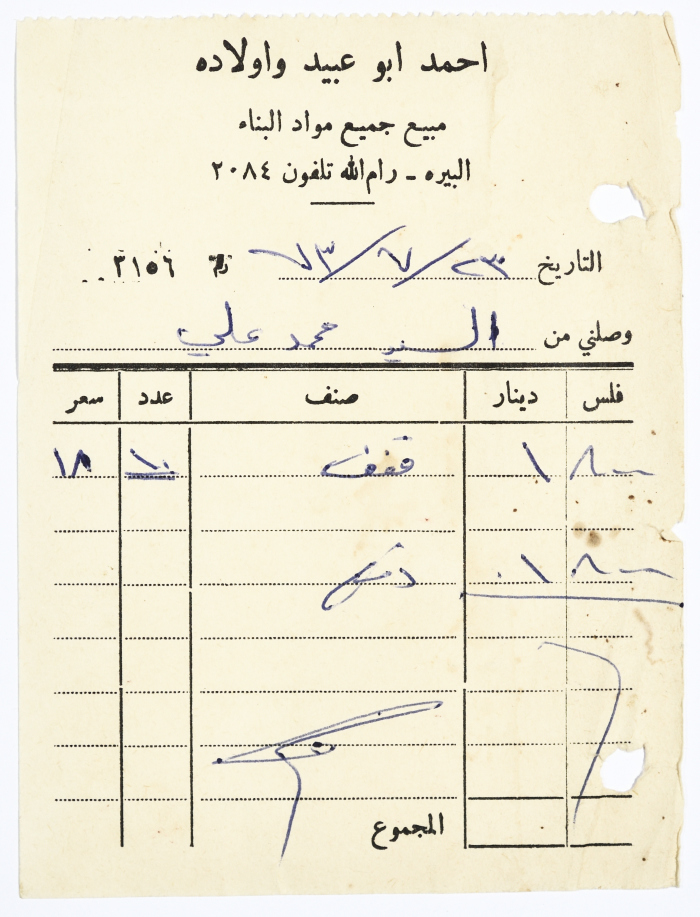 احمد ابو عبيد واولاده
مبيع جميع مواد البناء
البيره ـ رام الله تلفون ٢٠٨٤
التاريخ ٢٣/٧/٧٣ رقم ٣١٥٦
وصلني من السيد محمد علي
فلس دينار صنف عدد سعر
٨٠٠ ١ قفف ١٠ ١٨
٨٠٠ ١ دفع
المجموع